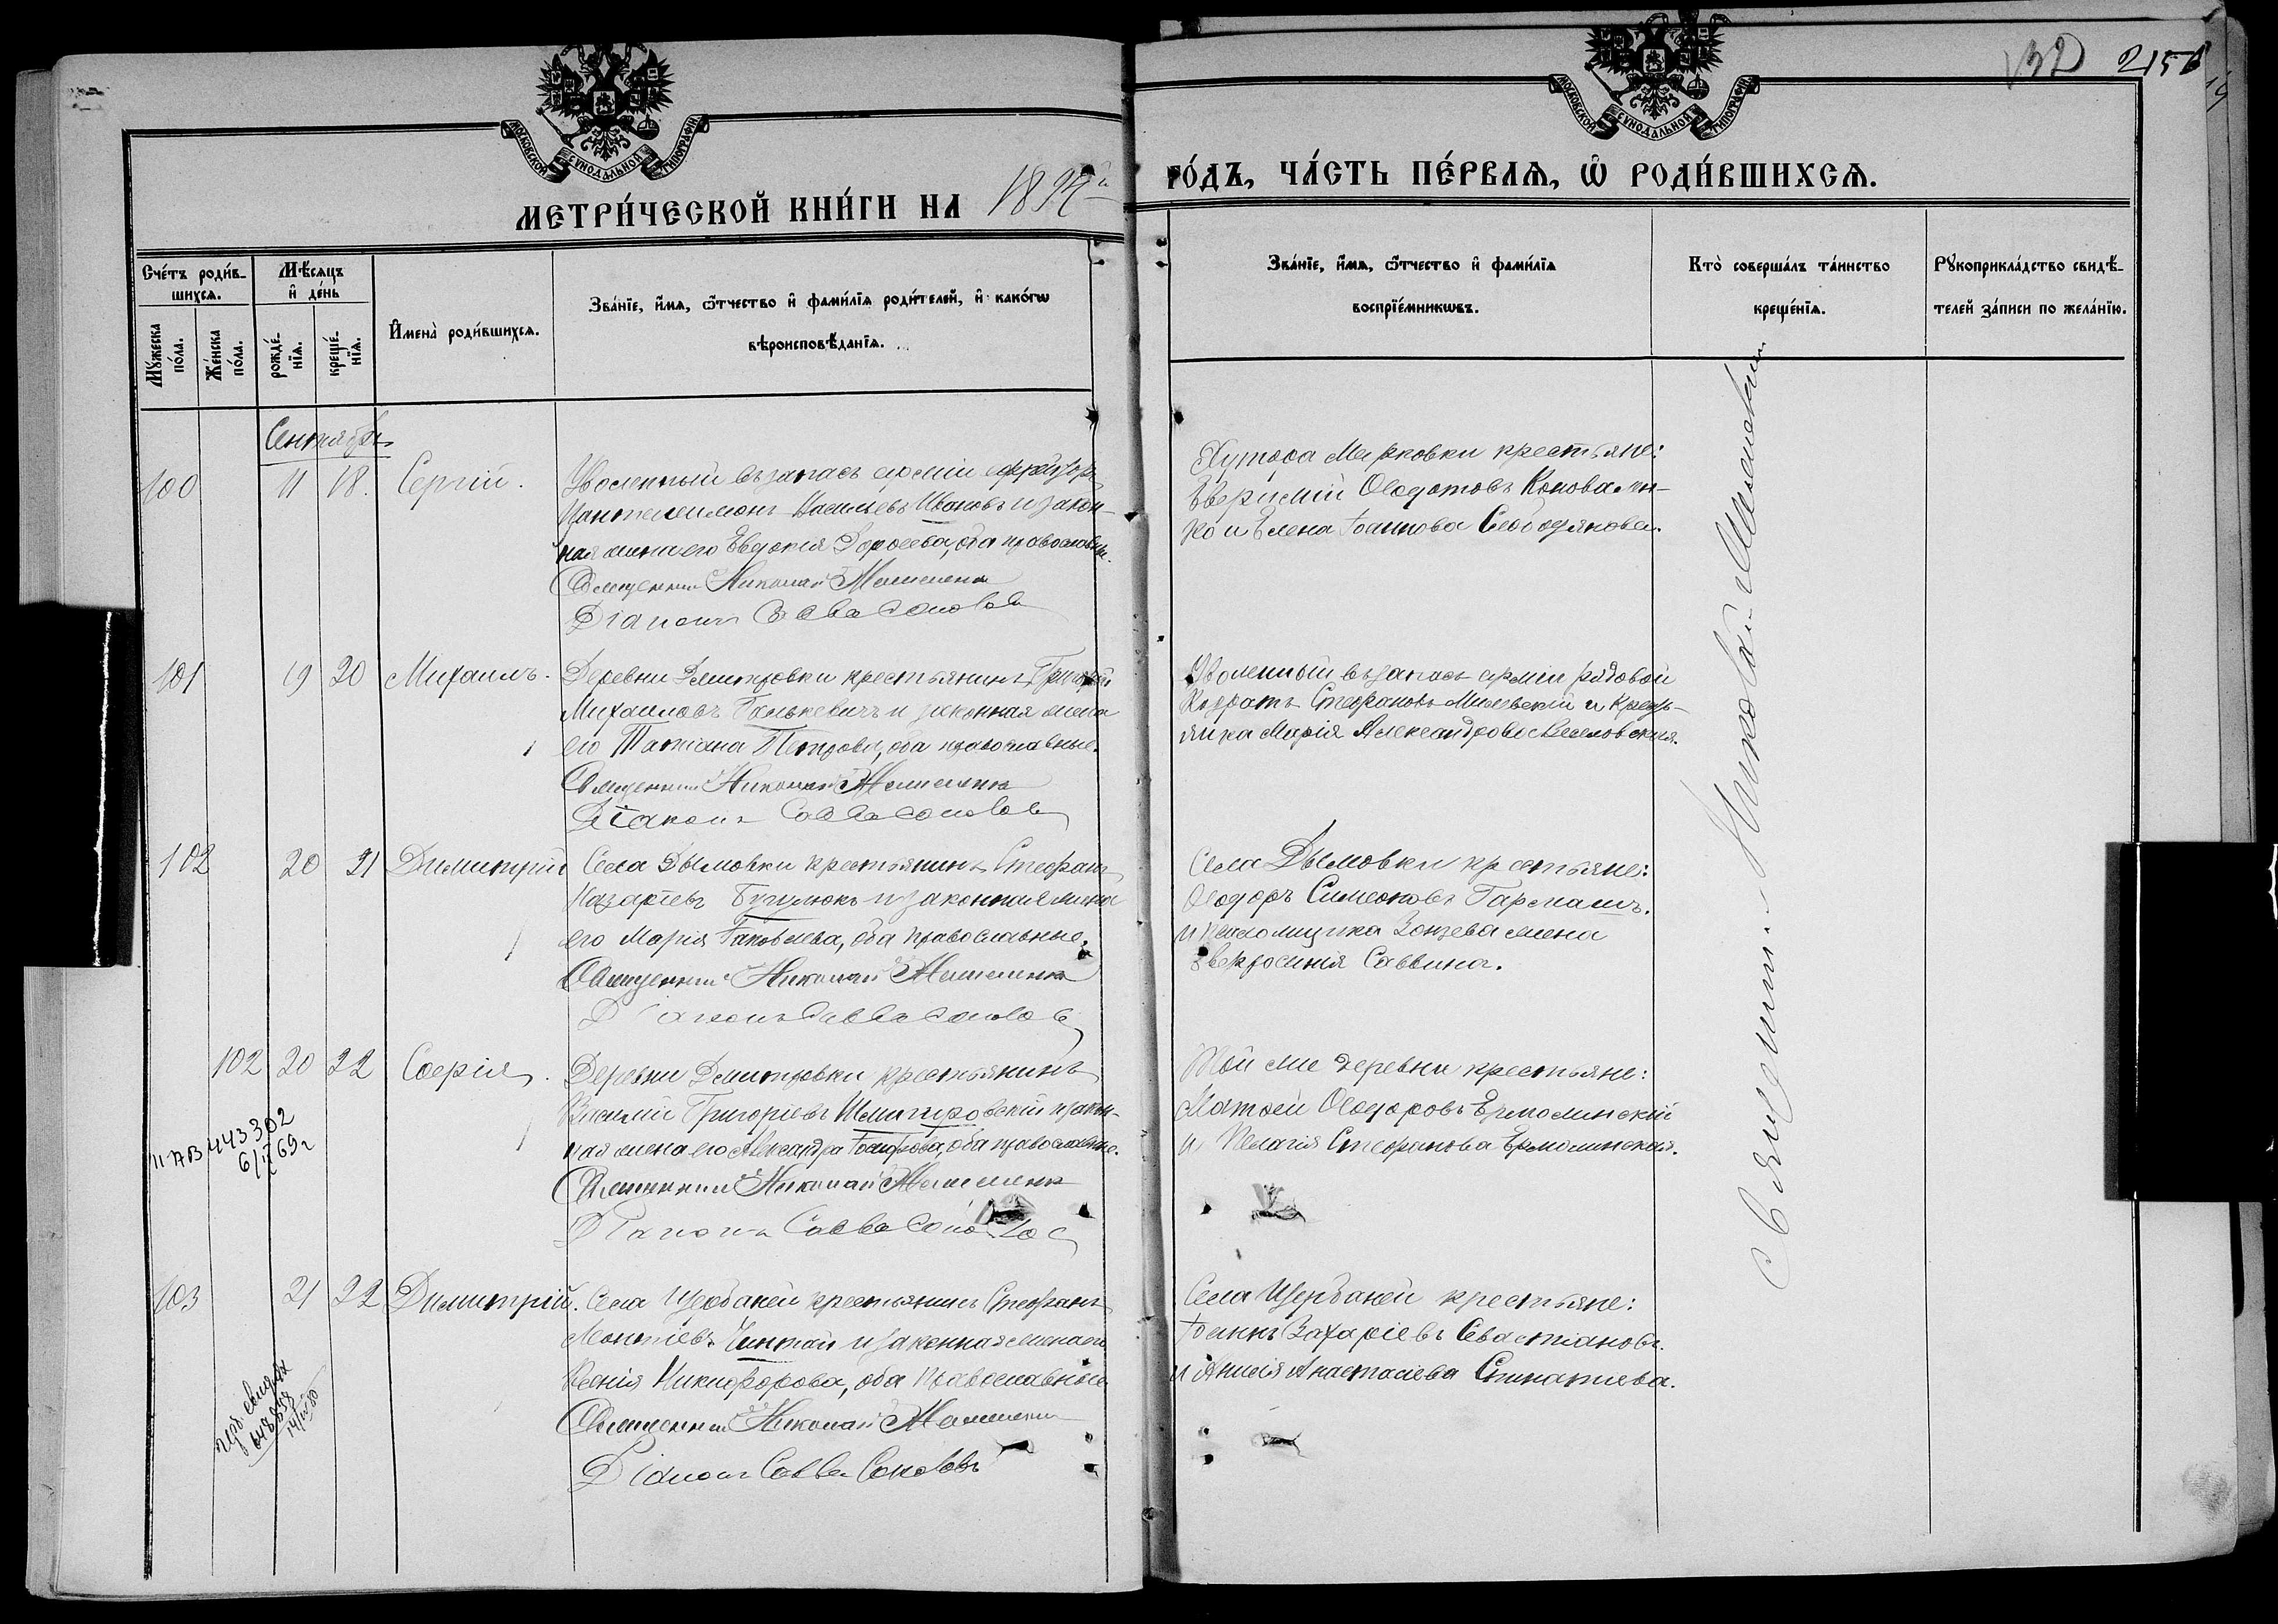 132 2156
МОСКОВСКОЙ СѴНОДАЛЬНОЙ ТИПОГРАФІИ
МЕТРИ́ЧЕСКОЙ КНИ́ГИ НА
МОСКОВСКОЙ СѴНОДАЛЬНОЙ ТИПОГРАФІИ
ГО́ДЪ, ЧА́СТЬ ПЕ́РВАѦ, Ѡ҆ РОДИ́ВШИХСѦ.
Сче́тъ роди́в-
шихсѧ.
Мꙋ́жеска
по́ла.
Же́нска
по́ла.
Мѣ́сѧцъ
и҆ де́нь
рожде́-
нїѧ.
креще́-
нїѧ.
И҆мена̀ роди́вшихсѧ.
Зва́нїе, и҆́мѧ, ѻ҆́тчество и҆ фами́лїѧ роди́телей, и҆ како́гѡ
вѣроисповѣ́данїѧ.
Зва́нїе, и҆́мѧ, ѻ҆́тчество и҆ фами́лїѧ
воспрїе́мникѡвъ.
Кто̀ соверша́лъ та́инство
креще́нїѧ.
Рꙋкоприкла́дство свидѣ́-
телей за́писи по жела́нїю.
Сентябрь
100 11 18. Сергій.
Уволенный въ запасъ арміи ефрейторъ
Пантелеимонъ Васильевъ Ивановъ и закон-
ная жена его Евдокія Дороѳеева, оба православн.
Священникъ Николай
Діаконъ Савва Соколовъ
Хутора Марковки крестьяне:
Евѳимій Ѳеодотовъ Коновален-
ко и Елена Іоаннова Слободянкова.
101 19 20 Михаилъ.
Деревни Дмитровки крестьянинъ Григорій
Михаиловъ Галькевичъ и законная жена
его Татіана Петрова, оба православные.
Священникъ Николай
Діаконъ Савва Соколовъ
Уволенный въ запасъ арміи рядовой
Кодратъ Стефановъ Милевскій и кресть-
янка Марія Александрова Веселовская.
102 20 21 Димитрій
Села Дымовки крестьянинъ Стефанъ
Назаріевъ и законная жена
его Марія Іаковлева, оба православные.
Священникъ Николай
Діаконъ Савва Соколовъ
Села Дымовки крестьяне:
Ѳеодоръ Симеоновъ Гармашъ.
и псаломщика жена
Евфросинія Саввина.
102 20 22 Софія.
Деревни Дмитровки крестьянинъ
Василій Григоріевъ и закон-
ная жена его Александра оба православные.
Священникъ Николай
Діаконъ Савва Соколовъ
Той же деревни крестьяне:
Матѳей Ѳеодоровъ Ермолинскій
и Пелагія Стефанова Ермолинская.
II-АВ 443302
6/II 69г
103 21 22 Димитрій.
Села Щербаней крестьянинъ Стефанъ
Леонтіевъ и законная жена его
Ксенія Никифорова, оба православные
Священникъ Николай
Діаконъ Савва Соколовъ
Села Щербаней крестьяне:
Іоаннъ Захаріевъ Севастіановъ.
и Анисія Анастасіева
Священникъ Николай